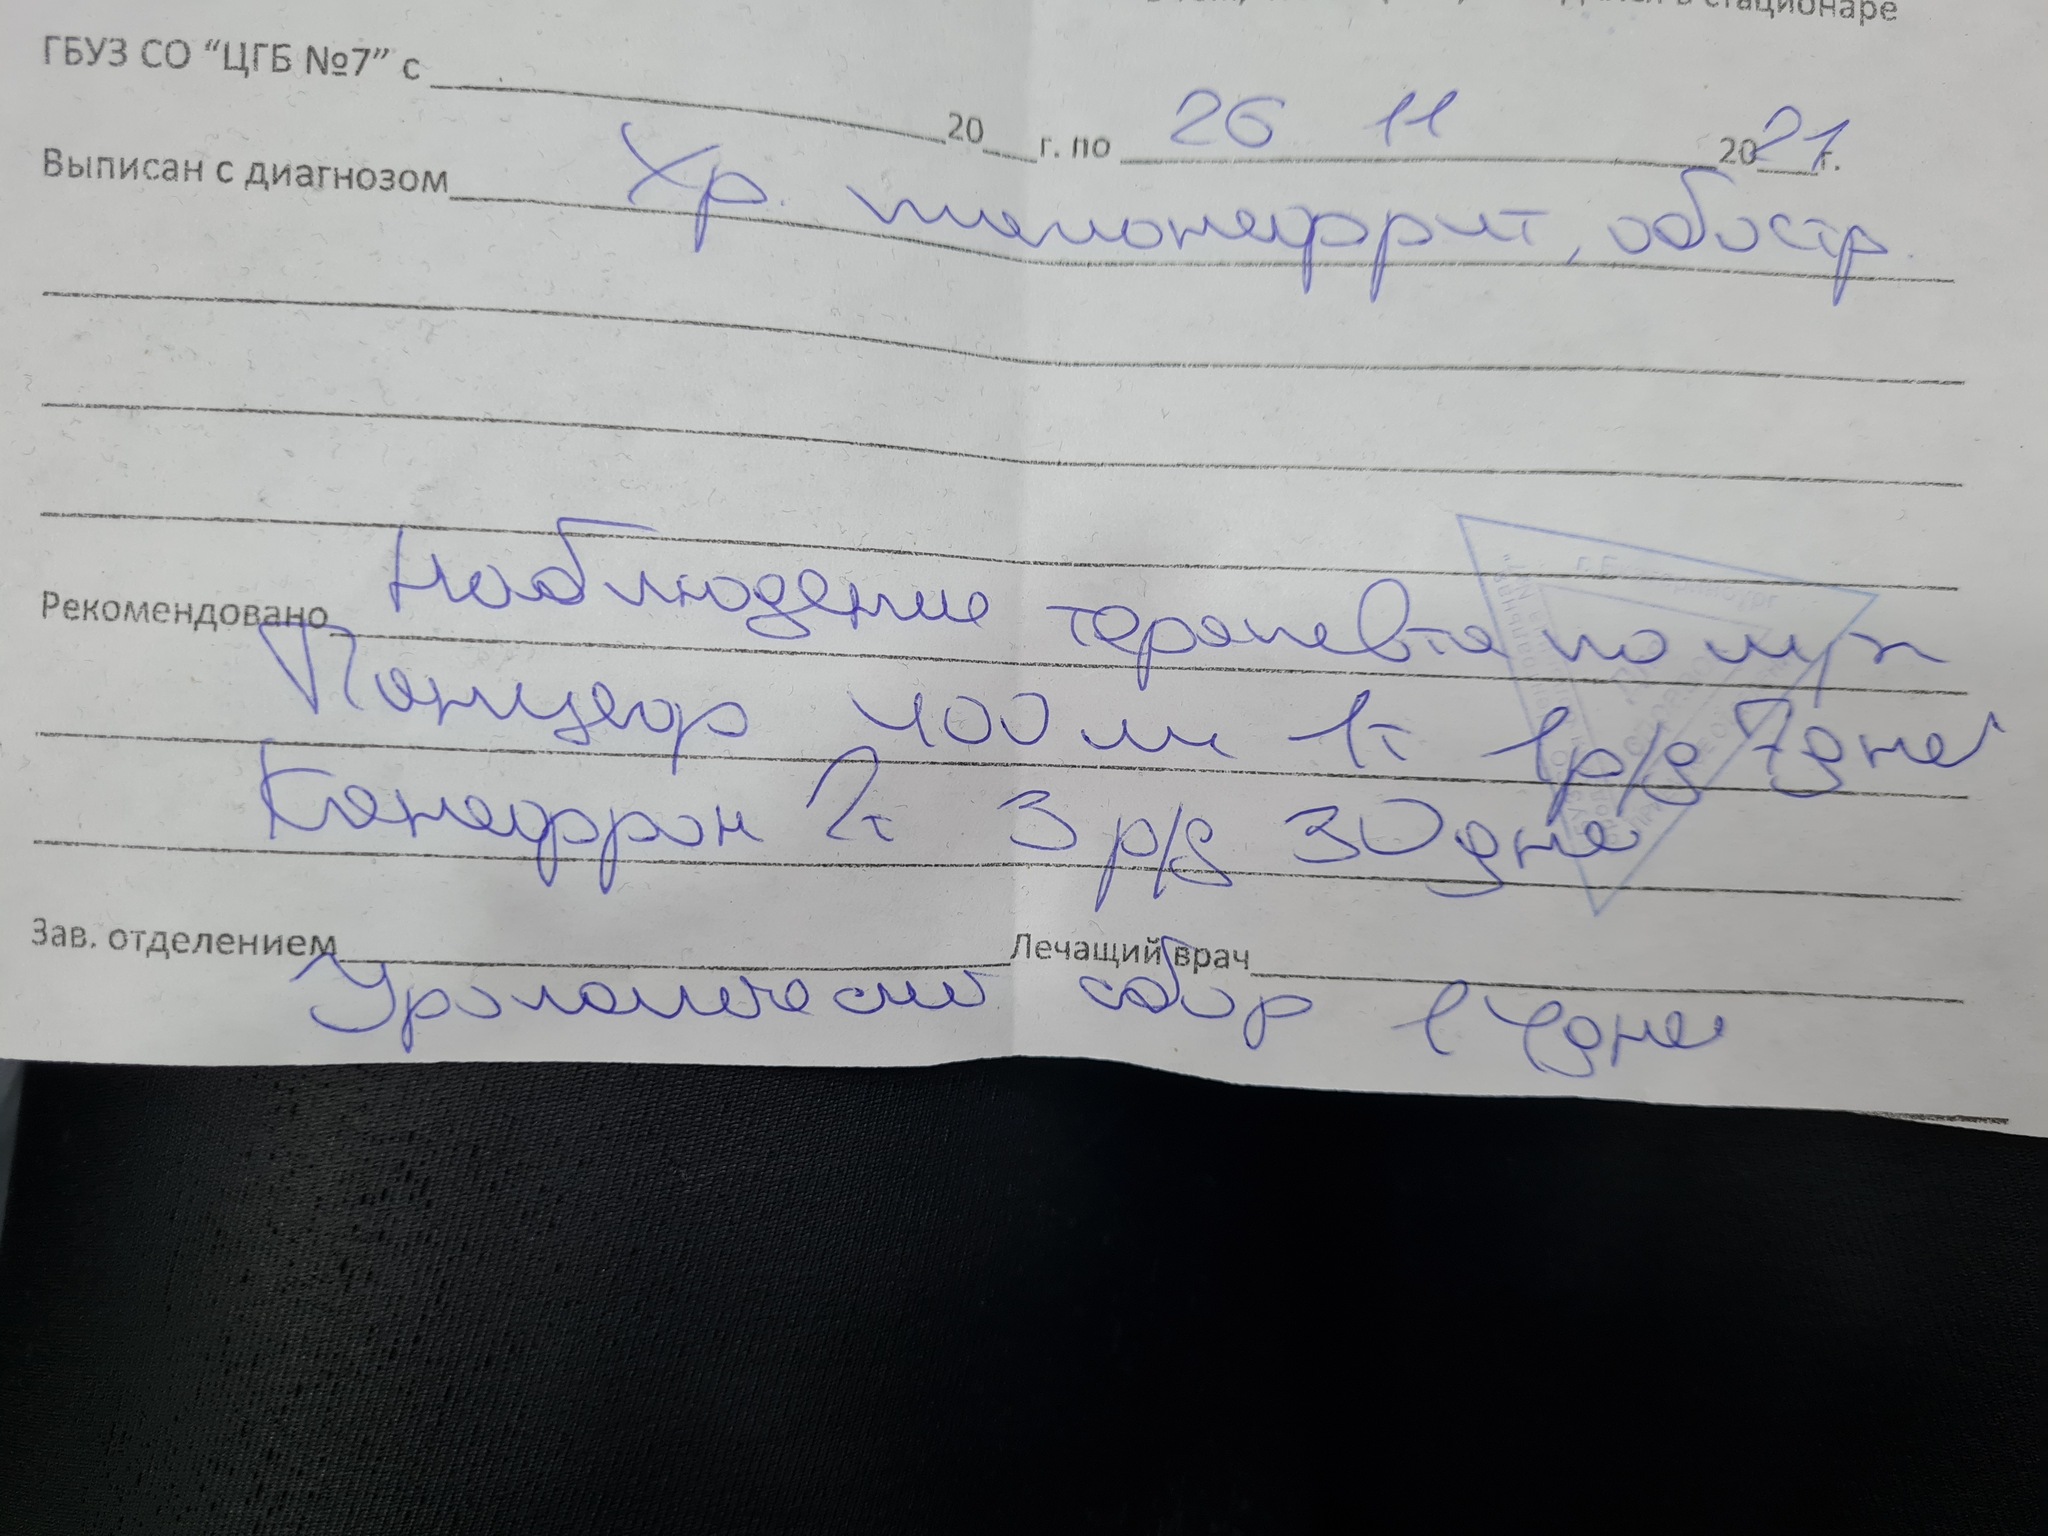 в стационаре
ГБУЗ СО “ЦГБ №7” с 20 г. по 26 11 2021 г.
Выписан с диагнозом Хр. пиелонефрит, обостр.
Рекомендовано Наблюдение терапевта по м/ж
Панцеф 400 мг 1т 1 р/д 7 дней
Канефрон 2т 3 р/д 30 дней
Зав. отделением Лечащий врач
Урологический сбор 14 дней